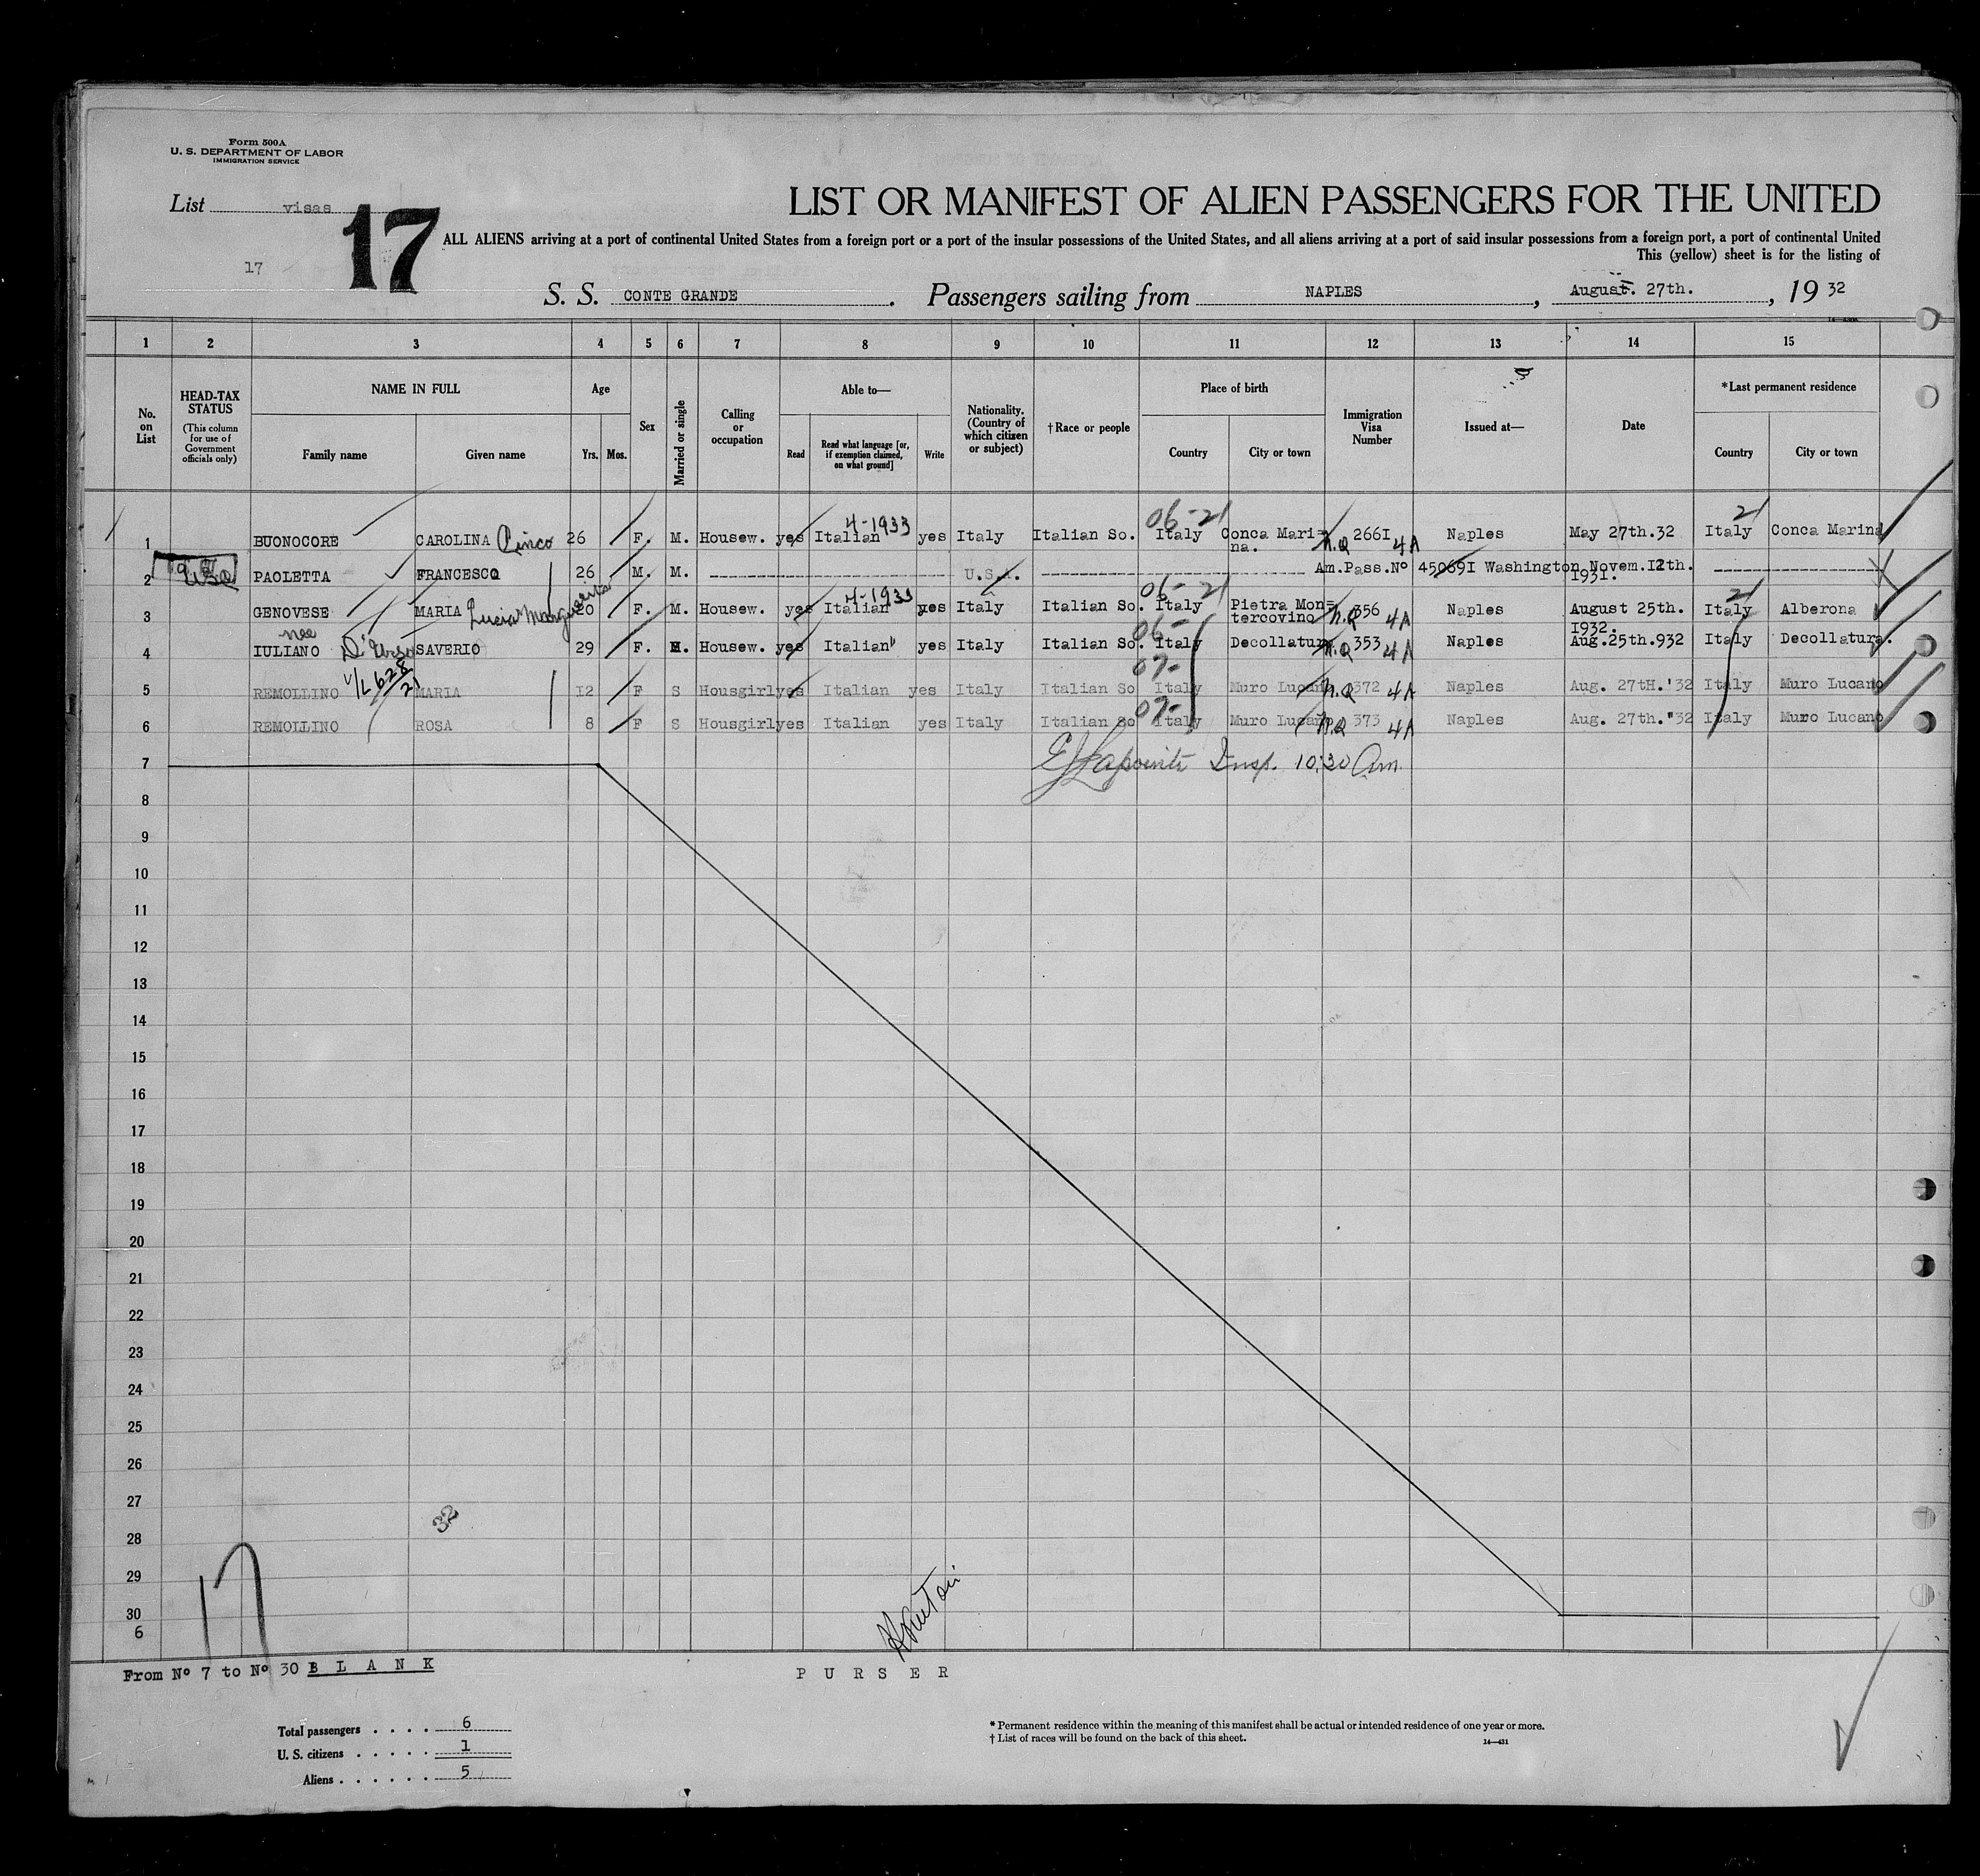 Form 500A
U. S. DEPARTMENT OF LABOR
IMMIGRATION SERVICE
List visas
17
17
LIST OR MANIFEST OF ALIEN PASSENGERS FOR THE UNITED
ALL ALIENS arriving at a port of continental United States from a foreign port or a port of the insular possessions of the United States, and all aliens arriving at a port of said insular possessions from a foreign port, a port of continental United
This (yellow) sheet is for the listing of
S. S. CONTE GRANDE. Passengers sailing from NAPLES, August. 27th., 19 32
1 2 3 4 5 6 7 8 9 10 11 12 13 14 15
No. on List
HEAD-TAX STATUS (This column for use of Government officials only)
NAME IN FULL
Family name Given name
Age
Yrs. Mos.
Sex
Married or single
Calling or occupation
Able to—
Read Read what language [or, if exemption claimed, on what ground] Write
Nationality. (Country of which citizen or subject)
†Race or people
Place of birth
Country City or town
Immigration Visa Number
Issued at—
Date
*Last permanent residence
Country City or town
4-1933 06-21 21
1 BUONOCORE CAROLINA 26 F. M. Housew. yes Italian yes Italy Italian So. Italy Conca Mari= N.Q 266I 4A Naples May 27th.32 Italy Conca Marina
na.
2 PAOLETTA FRANCESCO 26 M. M. U.S.A. Am.Pass.Nº 45069I Washington Novem.I2th.
1931.
4-1933 06-21 21
3 GENOVESE MARIA Lucia 30 F. M. Housew. yes Italian yes Italy Italian So. Italy Pietra Mon= N.Q 356 4A Naples August 25th. Italy Alberona
tercovino 1932.
nee 06-
4 IULIANO SAVERIO 29 F. M. Housew. yes Italian" yes Italy Italian So. Italy Decollatura N.Q 353 4A Naples Aug.25th.932 Italy Decollatura.
V/L 628/21 07-
5 REMOLLINO MARIA I2 F S Housgirl yes Italian yes Italy Italian So Italy Muro Lucano N.Q 372 4A Naples Aug. 27tH.'32 Italy Muro Lucano
07-
6 REMOLLINO ROSA 8 F S Housgirl yes Italian yes Italy Italian So Italy Muro Lucano N.Q 373 4A Naples Aug. 27th.'32 Italy Muro Lucano
7 Insp. 10:30 Am.
8
9
10
11
12
13
14
15
16
17
18
19
20
21
22
23
24
25
26
27
32
28
29
30
6
17
From Nº 7 to Nº 30 B L A N K
P U R S E R
Total passengers . . . . 6
U. S. citizens . . . . . 1
Aliens . . . . . . 5
* Permanent residence within the meaning of this manifest shall be actual or intended residence of one year or more.
† List of races will be found on the back of this sheet.
14—431